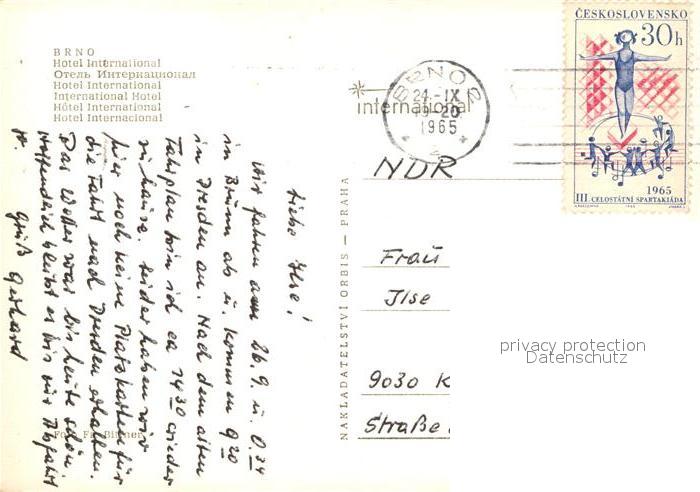 BRNO
Hotel International
Отель Интернационал
Hotel International
International Hotel
Hôtel International
Hotel Internacional
international
BRNO 2
24.-IX
19-20
1965
ČESKOSLOVENSKO
30h
1965
III. CELOSTÁTNÍ SPARTAKIÁDA
Liebe Ilse!
Wir fahren am 26.9. u. 0.34
in Brünn ab u. kommen 9 20
in Dresden an. Nach dem alten
Fahrplan bin ich ca 14 30 wieder
zu hause. Leider haben wir
hier noch keine Platzkarten für
die Fahrt nach Dresden erhalten.
Das Wetter war bis heute schön
hoffendlich bleibt es bis zur Abfahrt
so. Gruß Gerhard
Foto Fr. Bittner
NAKLADATELSTVÍ ORBIS — PRAHA
NDR
Frau
Ilse
9030 K
Straße
privacy protection
Datenschutz